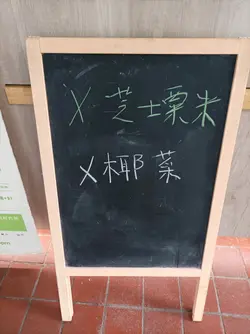 X 芝士粟米
X 椰菜